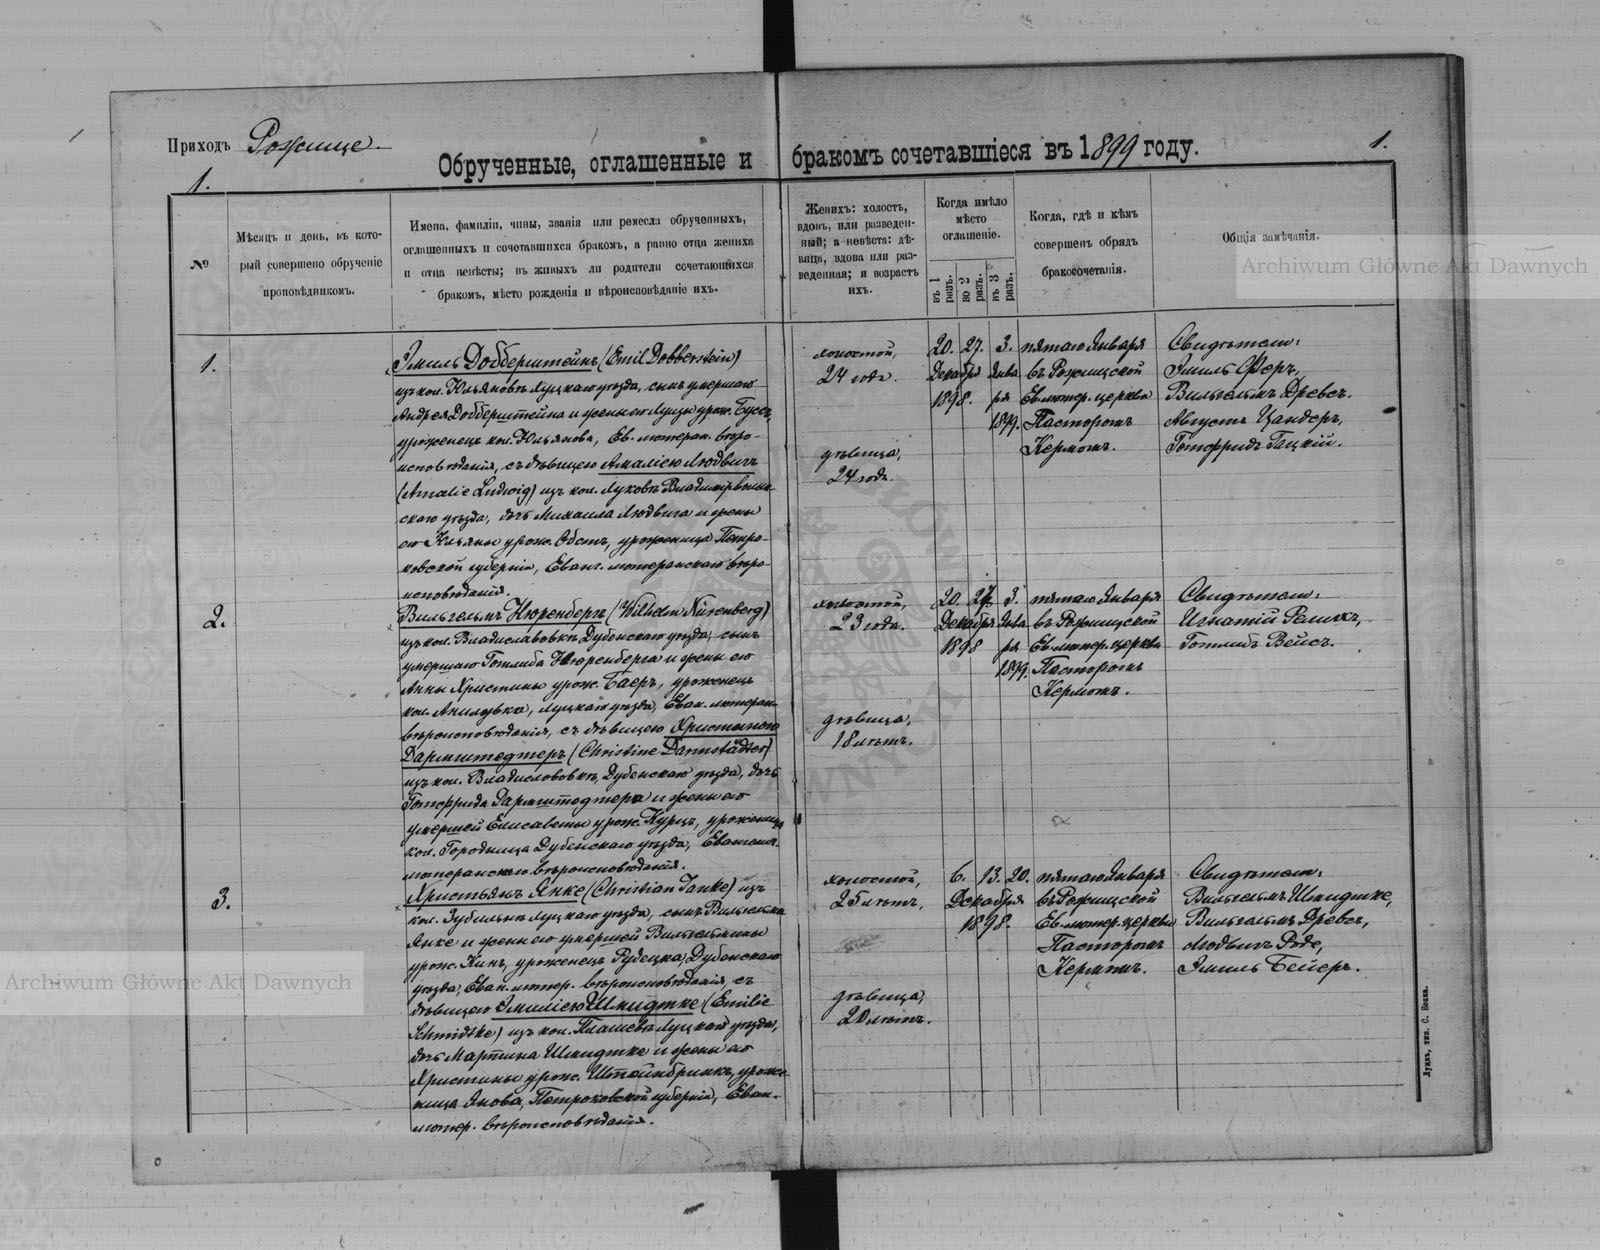 Приходъ Рожище
Обрученные, оглашенные и бракомъ сочетавшіеся въ 1899 году.
1.
1.
№
Мѣсяцъ и день, въ кото-
рый совершено обрученіе
проповѣдникомъ.
Имена, фамиліи, чины, званія или ремесла обрученныхъ,
оглашенныхъ и сочетавшихся бракомъ, а равно отца жениха
и отца невѣсты; въ живыхъ ли родители сочетающихся
бракомъ, мѣсто рожденія и вѣроисповѣданіе ихъ.
Женихъ: холостъ,
вдовъ, или разведен-
ный; а невѣста: дѣ-
вица, вдова или раз-
веденная; и возрастъ
ихъ.
Когда имѣло
мѣсто
оглашеніе.
въ 1 разъ.
во 2 разъ.
въ 3 разъ.
Когда, гдѣ и кѣмъ
совершенъ обрядъ
бракосочетанія.
Общія замѣчанія.
1.
Эмиль Доббернштейнъ (Emil Dobberstein)
изъ кол. Юльяновъ Луцкаго уѣзда, сынъ умершаго
Андрея Добберштейна и жены его Луизы урож. Буссъ,
уроженецъ кол. Юльянова, Ев. лютеран. вѣро-
исповѣданія, съ дѣвицею Амаліею Людвигъ
(Amalie Ludwig) изъ кол. Луковъ Владимірволын-
скаго уѣзда, дочь Михаила Людвига и жены
его Юльяны урож. Обстъ, уроженица Петро-
ковской губерніи, Еванг. лютеранскаго вѣро-
исповѣданія.
холостой,
24 года.
дѣвица,
24 года.
20. 27. 3.
Декабря Янва
1898. ря
1899.
пятаго Января
въ Рожищской
Ев. лютер. церкви
Пасторомъ
Кермомъ.
Свидѣтели:
Эмиль Феръ,
Вильгельмъ Древсъ.
Августъ Цандеръ,
Готфридъ Гацкій.
2.
Вильгельмъ Нюренбергъ (Wilhelm Nürenberg)
изъ кол. Владиславовкъ Дубенскаго уѣзда, сынъ
умершаго Готлиба Нюренберга и жены его
Анны Христины урож. Баеръ, уроженецъ
кол. Анилувка, Луцкаго уѣзда, Еван. лютеран.
вѣроисповѣданія, съ дѣвицею Христиною
Дармштедтеръ (Christine Darmstädter)
изъ кол. Владиславовкъ, Дубенскаго уѣзда, дочь
Готфрида Дармштедтера и жены его
умершей Елисаветы урож. Курцъ, уроженица
кол. Городница Дубенскаго уѣзда, Евангел.
лютеранскаго вѣроисповѣданія.
холостой,
23 года.
дѣвица,
18 лѣтъ.
20. 27. 3.
Декабря Янва
1898 ря
1899.
пятаго Января
въ Рожищской
Ев. лютер. церкви
Пасторомъ
Кермомъ.
Свидѣтели:
Игнатій
Готлибъ Вейсъ.
3.
Христьянъ Янке (Christian Janke) изъ
кол. Зубильнъ Луцкаго уѣзда, сынъ Вильгельма
Янке и жены его умершей Вильгельмины
урож. Кинъ, уроженецъ Рудецка, Дубенскаго
уѣзда, Еван. лютер. вѣроисповѣданія, съ
дѣвицею Эмиліею Шмидтке (Emilie
Schmidtke) изъ кол. Плашевъ Луцкаго уѣзда,
дочь Мартина Шмидтке и жены его
Христины урож. Штейнбринкъ, уроже-
ница Янова, Петроковской губерніи, Еван.
лютер. вѣроисповѣданія.
холостой,
25 лѣтъ,
дѣвица,
20 лѣтъ.
6. 13. 20.
Декабря
1898.
пятаго Января
въ Рожищской
Ев. лютер. церкви
Пасторомъ
Кермомъ.
Свидѣтели:
Вильгельмъ Шмидтке,
Вильгельмъ Древсъ,
Людвигъ Роде,
Эмиль Бейеръ.
Луцкъ, тип. С. Бокка.
Archiwum Główne Akt Dawnych
Archiwum Główne Akt Dawnych